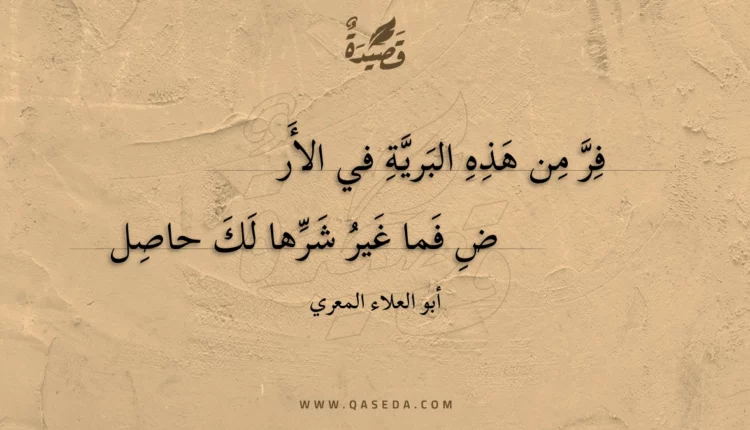 قَصِيْدَةٌ
فِرَّ مِن هَذِهِ البَريَّةِ في الأَر
ضِ فَما غَيرُ شَرِّها لَكَ حاصِل
أبو العلاء المعري
WWW.QASEDA.COM